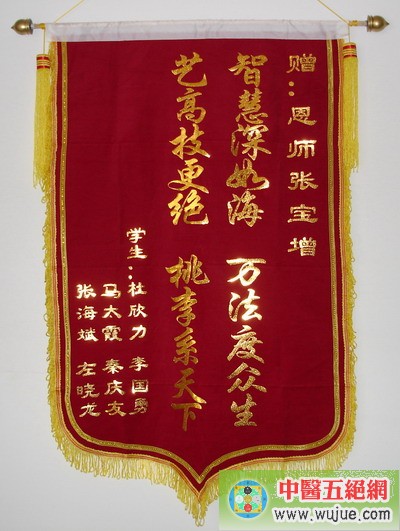 赠：恩师张宝增
智慧深如海 万法度众生
艺高技更绝 桃李系天下
学生：杜欣力 李国勇
马太霞 秦庆友
张海斌 左晓龙
中醫五絕網
www.wujue.com